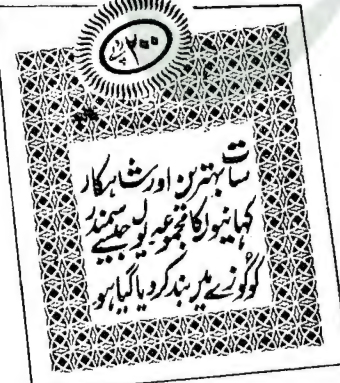 ۲۰۰
سات بہترین اور شاہکار
کہانیوں کا مجموعہ یوں جیسے سمندر
کو کوزے میں بند کر دیا گیا ہو